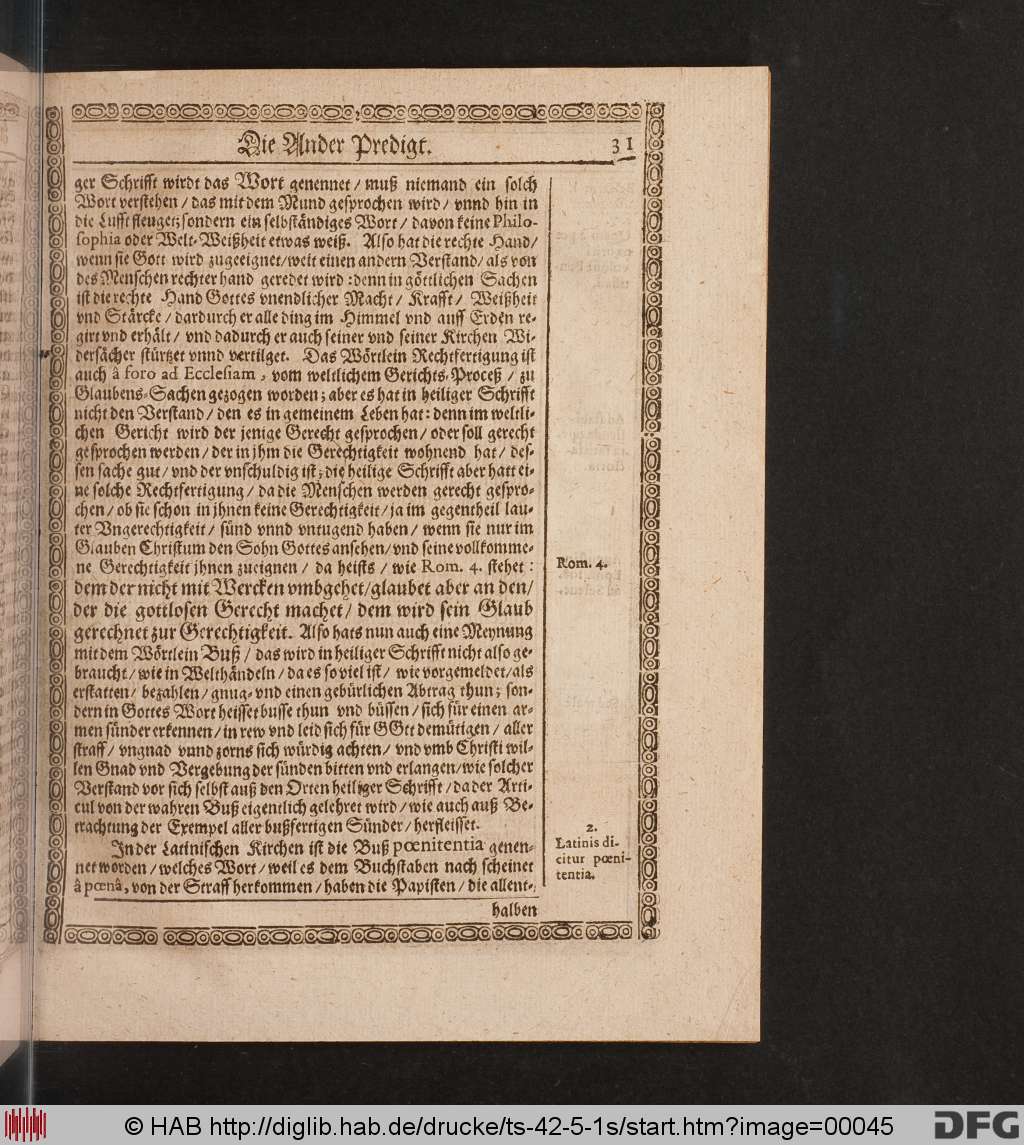 Die Ander Predigt. 31
ger Schrifft wirdt das Wort genennet / muß niemand ein solch
Wort verstehen / das mit dem Mund gesprochen wird / vnnd hin in
die Lufft fleuget; sondern ein selbständiges Wort / davon keine Philo-
sophia oder Welt-Weißheit etwas weiß. Also hat die rechte Hand/
wenn sie Gott wird zugeeignet/weit einen andern Verstand/als von
des Menschen rechter hand geredet wird: denn in göttlichen Sachen
ist die rechte Hand Gottes vnendlicher Macht/ Krafft/ Weißheit
vnd Stärcke / dardurch er alle ding im Himmel vnd auff Erden re-
girt vnd erhält/ vnd dadurch er auch seiner vnd seiner Kirchen Wi-
dersächer stürtzet vnnd vertilget. Das Wörtlein Rechtfertigung ist
auch â foro ad Ecclesiam, vom weltlichem Gerichts-Proceß / zu
Glaubens-Sachen gezogen worden; aber es hat in heiliger Schrifft
nicht den Verstand/ den es in gemeinem Leben hat: denn im weltli-
chen Gericht wird der jenige Gerecht gesprochen/ oder soll gerecht
gesprochen werden/ der in jhm die Gerechtigkeit wohnend hat/ des-
sen sache gut/ vnd der vnschuldig ist; die heilige Schrifft aber hatt ei-
ne solche Rechtfertigung / da die Menschen werden gerecht gespro-
chen/ ob sie schon in jhnen keine Gerechtigkeit/ ja im gegentheil lau-
ter Vngerechtigkeit / sünd vnnd vntugend haben/ wenn sie nur im
Glauben Christum den Sohn Gottes ansehen/vnd seine vollkomme-
ne Gerechtigkeit jhnen zueignen / da heists / wie Rom. 4. stehet:
Rom. 4.
dem der nicht mit Wercken vmbgehet/glaubet aber an den/
der die gottlosen Gerecht machet/ dem wird sein Glaub
gerechnet zur Gerechtigkeit. Also hats nun auch eine Meynung
mit dem Wörtlein Buß / das wird in heiliger Schrifft nicht also ge-
braucht/ wie in Welthändeln / da es so viel ist/ wie vorgemeldet/als
erstatten/ bezahlen / gnug- vnd einen gebürlichen Abtrag thun; son-
dern in Gottes Wort heisset busse thun vnd büssen / sich für einen ar-
men sünder erkennen / in rew vnd leid sich für GGtt demütigen / aller
straff/ vngnad vnnd zorns sich würdig achten/ vnd vmb Christi wil-
len Gnad vnd Vergebung der sünden bitten vnd erlangen/wie solcher
Verstand vor sich selbst auß den Orten heiliger Schrifft/ da der Arti-
cul von der wahren Buß eigentlich gelehret wird/ wie auch auß Be-
trachtung der Exempel aller bußfertigen Sünder/ herfleisset.
In der Latinischen Kirchen ist die Buß pœnitentia genen-
net worden/ welches Wort/ weil es dem Buchstaben nach scheinet
â pœnâ, von der Straff herkommen/ haben die Papisten/ die allent-
2.
Latinis di-
citur pœni-
tentia.
halben
© HAB http://diglib.hab.de/drucke/ts-42-5-1s/start.htm?image=00045
DFG